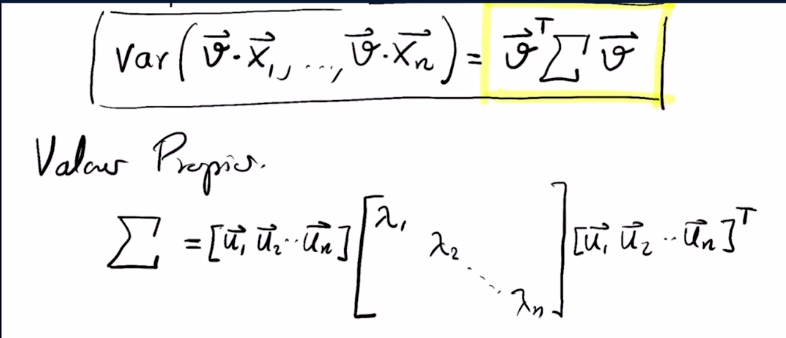 Var(v⃗·x⃗₁, ..., v⃗·x⃗ₙ) = v⃗ᵀ Σ v⃗
Valeurs Propres.
Σ = [u⃗₁ u⃗₂ ·· u⃗ₙ] [λ₁ λ₂ ⋱ λₙ] [u⃗₁ u⃗₂ ·· u⃗ₙ]ᵀ